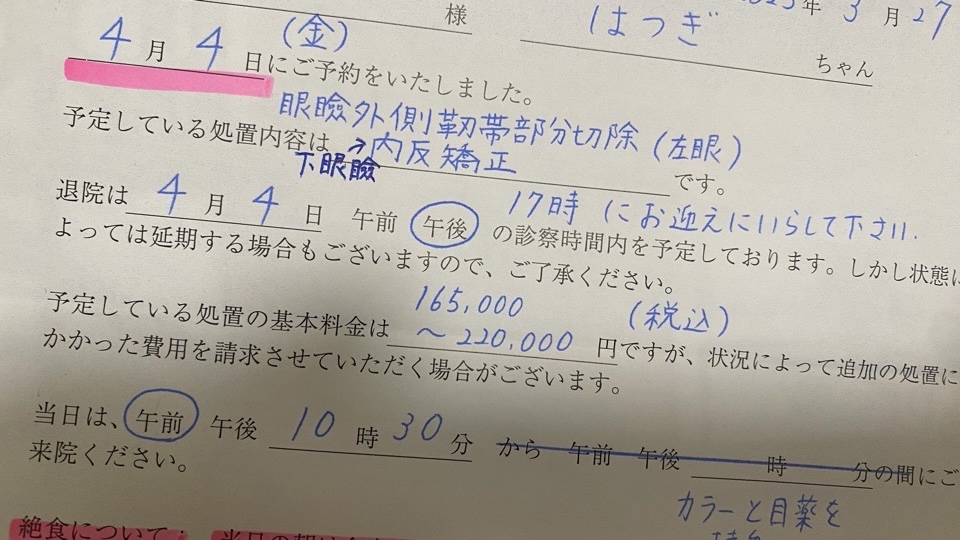 様 2025年3月27
はつぎ ちゃん
4月4日(金)にご予約をいたしました。
眼瞼外側靭帯部分切除(左眼)
予定している処置内容は→内反矯正です。
下眼瞼
17時にお迎えにいらして下さい.
退院は4月4日 午前 午後 の診察時間内を予定しております。しかし状態に
よっては延期する場合もございますので、ご了承ください。
165,000 (税込)
予定している処置の基本料金は~220,000円ですが、状況によって追加の処置に
かかった費用を請求させていただく場合がございます。
当日は、午前 午後 10時30分 から 午前 午後 時 分の間にご
来院ください。
カラーと目薬を
絶食について: